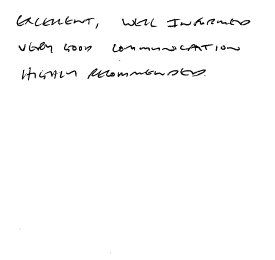 EXCELLENT, WELL INFORMED
VERY GOOD COMMUNICATION
HIGHLY RECOMMENDED